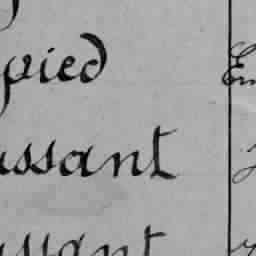 pied En
ussant
ussant